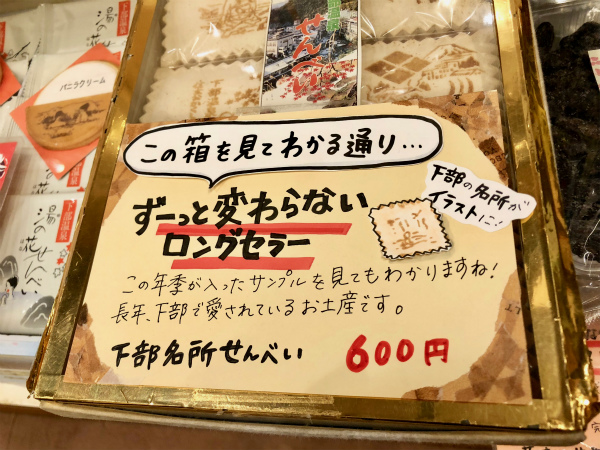 バニラクリーム
下部温泉
湯の花せんべい
せんべい
この箱を見てわかる通り…
下部の名所が
イラストに!
ずーっと変わらない
ロングセラー
この年季が入ったサンプルを見てもわかりますね!
長年、下部で愛されているお土産です。
下部名所せんべい 600円